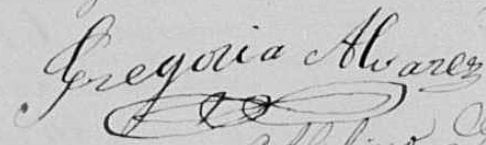 Gregoria Alvarez